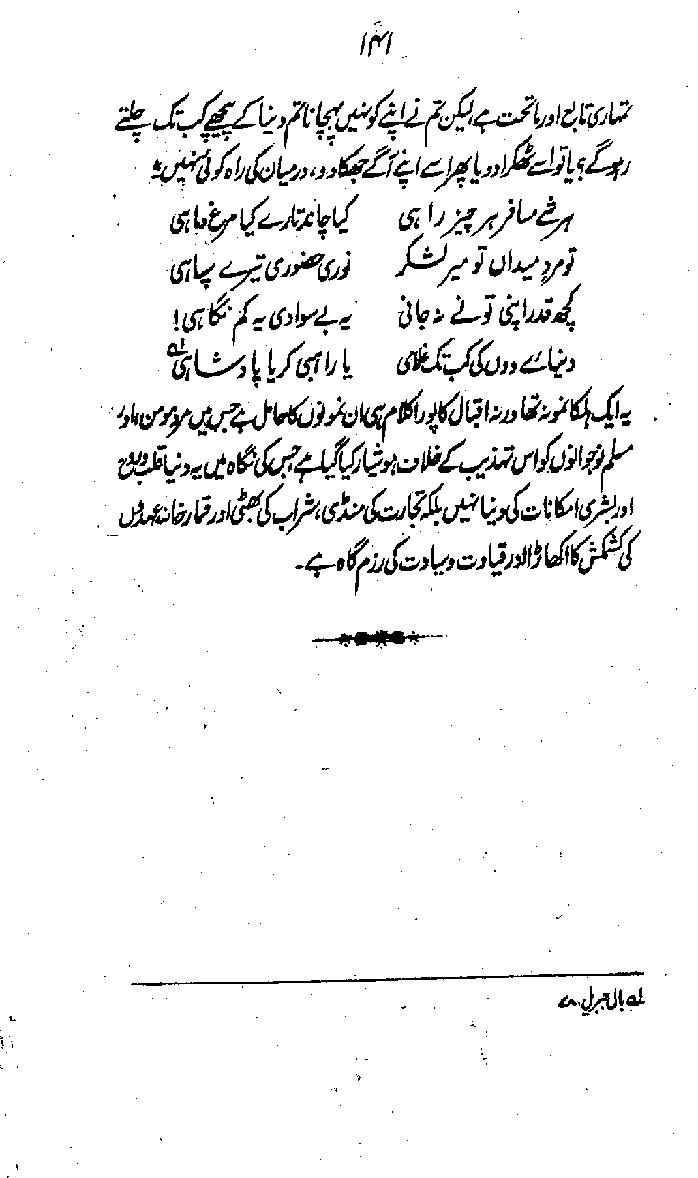 ۱۴۱
تمہاری تابع اور ماتحت ہے، لیکن تم نے اپنے کو نہیں پہچانا تم دنیا کے پیچھے کب تک چلتے
رہو گے؟ یا تو اسے ٹھکرا دو یا پھر اسے اپنے آگے جھکا دو، درمیان کی راہ کوئی نہیں؛
ہر شے مسافر ہر چیز راہی کیا چاند تارے کیا مرغ و ماہی
تو مردِ میداں تو میر لشکر نوری حضوری تیرے سپاہی
کچھ قدر اپنی تو نے نہ جانی یہ بے سوادی یہ کم نگاہی!
دنیائے دوں کی کب تک غلامی یا راہبی کر یا پادشاہی لہ
یہ ایک ہلکا نمونہ تھا ورنہ اقبال کا پورا کلام ہی ان نمونوں کا حامل ہے جس میں مرد مومن اور
مسلم نوجوانوں کو اس تہذیب کے خلاف ہوشیار کیا گیا ہے جس کی نگاہ میں یہ دنیا قلب و روح
اور بشری امکانات کی دنیا نہیں بلکہ تجارت کی منڈی، شراب کی بھٹی اور قمار خانہ عہدوں
کی کشمکش کا اکھاڑا اور قیادت و سیادت کی رزم گاہ ہے۔
لہ بال جبریل